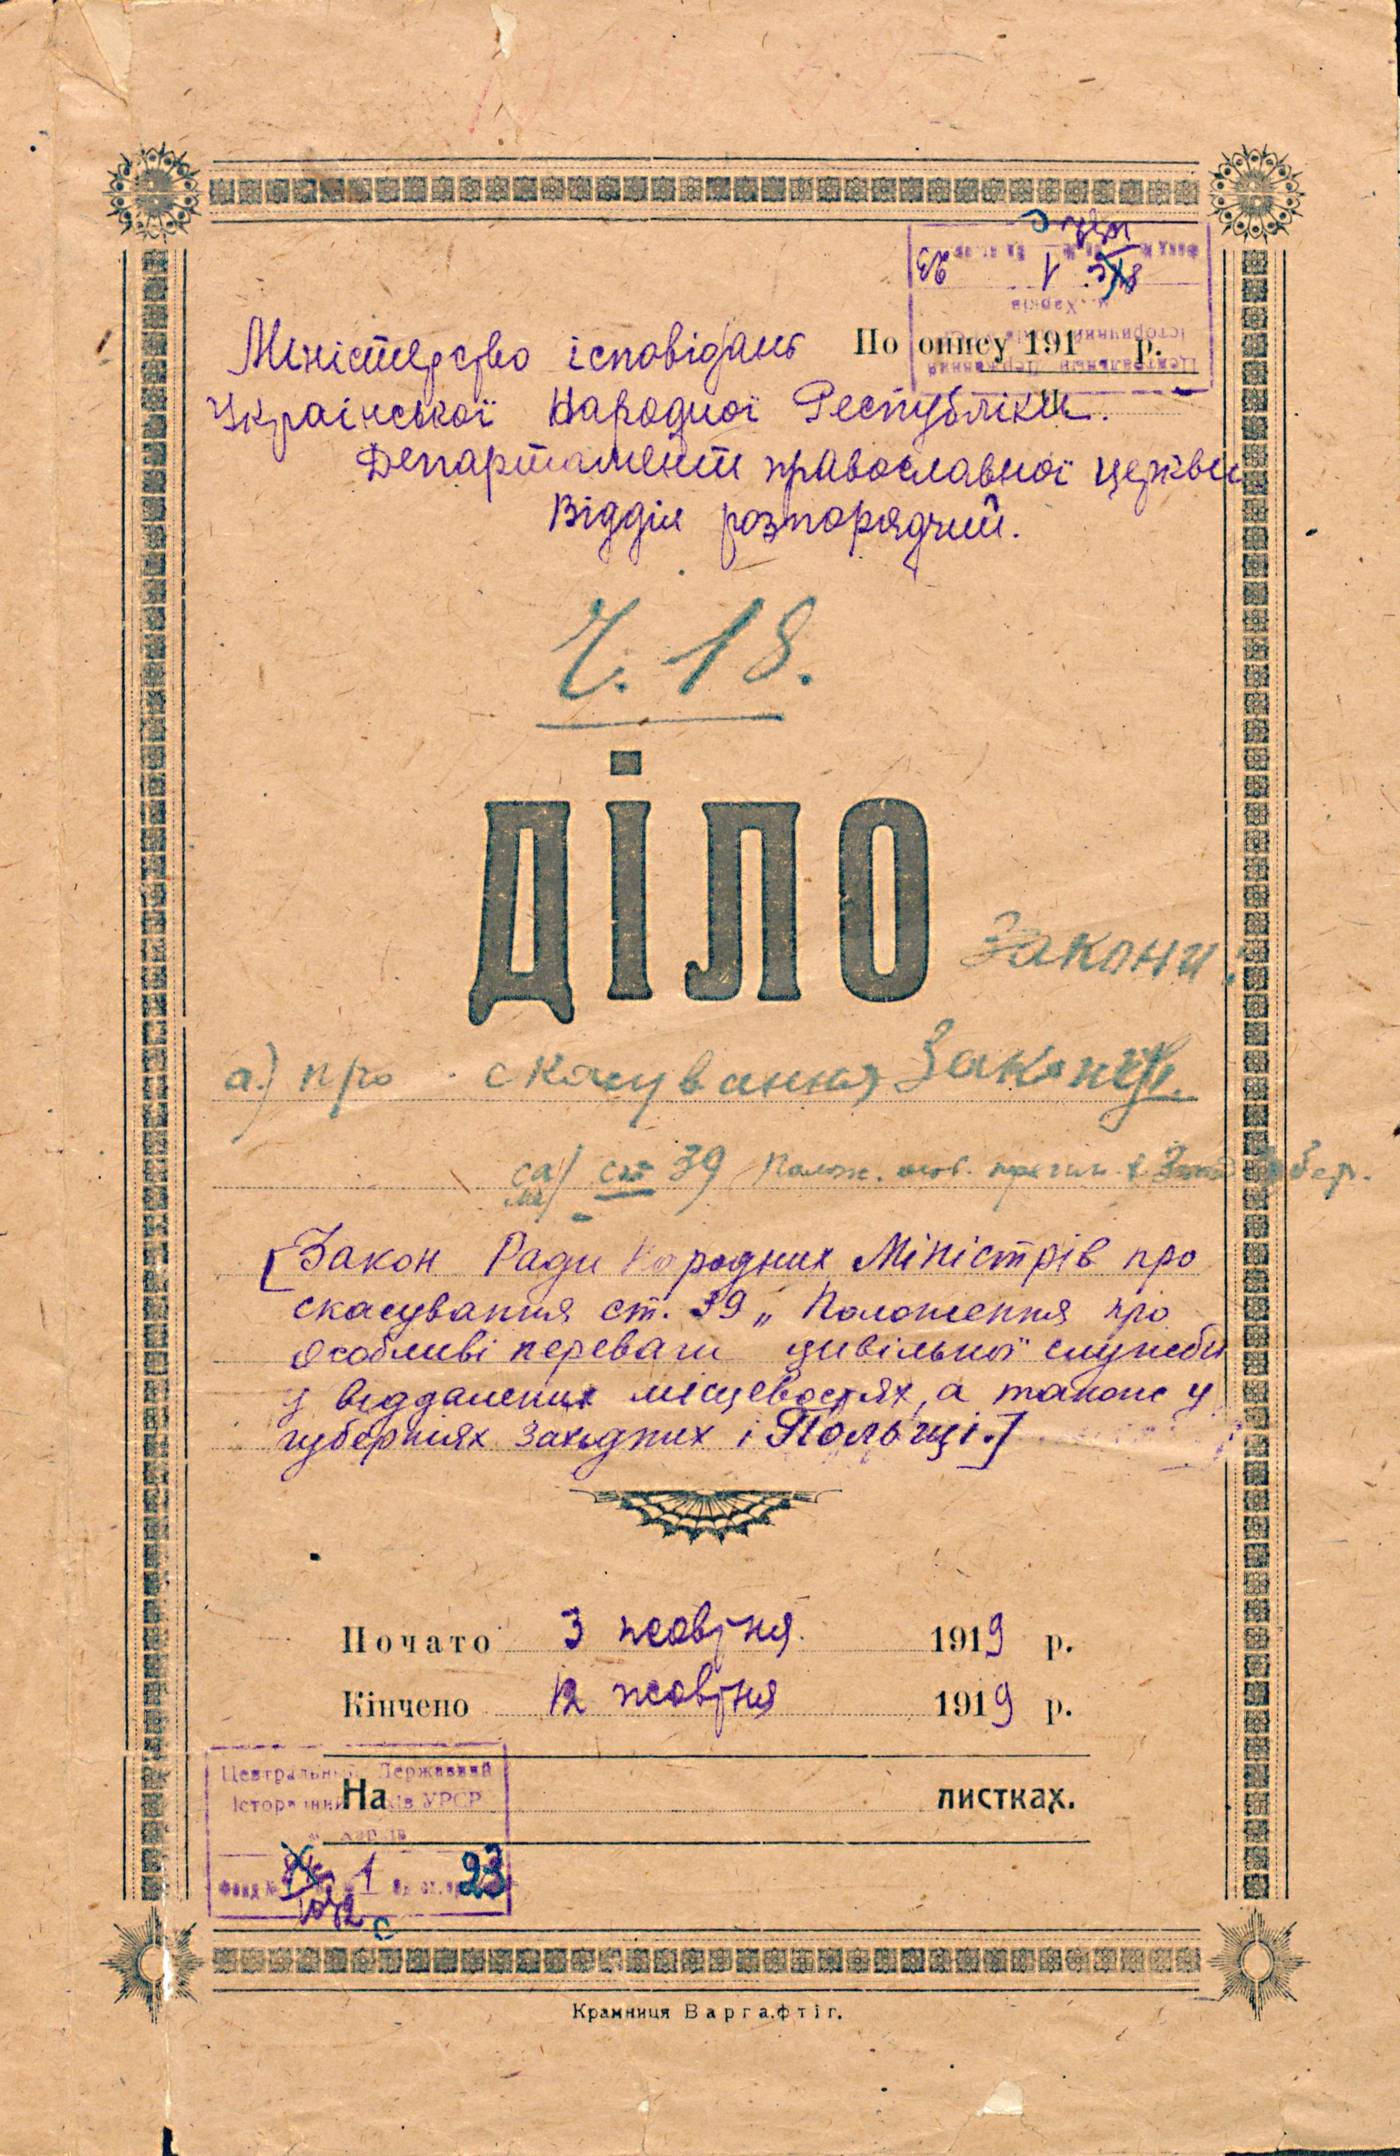 По опису 191 р.
Міністерство ісповідань
Української Народної Республіки.
Департамент православної церкви
Відділ розпорядчий.
Ч. 18.
ДІЛО
Закони:
а) про скасування Закону
ст 39 Полож.
[Закон Ради Народних Міністрів про
скасування ст. 39 „ Положення про
особливі переваги цивільної служби
у віддалених місцевостях, а також у
губерніях Західних і Польщі.]
Почато 3 жовтня 1919 р.
Кінчено 12 жовтня 1919 р.
На листках.
Центральний Державний
Історичний Архів УРСР
м. Харків
Фонд № 1 23
Крамниця Варгафтіг.